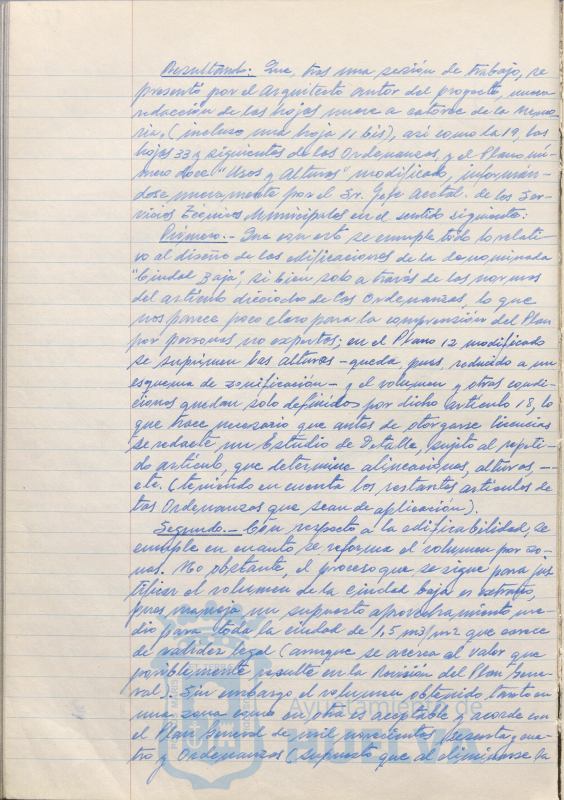 Resultando: Que, tras una sesión de trabajo, se
presentó por el arquitecto autor del proyecto, nueva
redacción de las hojas nueve a catorce de la Memo-
ria, (incluso una hoja 11 bis), así como la 19, las
hojas 33 y siguientes de las Ordenanzas, y el Plano nú-
mero doce "Usos y Alturas" modificado, informán-
dose nuevamente por el Sr. Jefe acctal. de los Ser-
vicios Técnicos Municipales en el sentido siguiente:
Primero.- Que con esto se cumple todo lo relati-
vo al diseño de las edificaciones de la denominada
"Ciudad Baja", si bien solo a través de las normas
del artículo dieciocho de las Ordenanzas, lo que
nos parece poco claro para la comprensión del Plan
por personas no expertas; en el Plano 12 modificado
se suprimen las alturas - queda pues, reducido a un
esquema de zonificación - y el volumen y otras condi-
ciones quedan solo definidos por dicho artículo 18, lo
que hace necesario que antes de otorgarse licencias
se redacte un Estudio de Detalle, sujeto al repeti-
do artículo, que determine alineaciones, alturas --
etc. (teniendo en cuenta los restantes artículos de
las Ordenanzas que sean de aplicación).
Segundo.- Con respecto a la edificabilidad, se
cumple en cuanto se reforma el volumen por zo-
nas. No obstante, el proceso que se sigue para jus
tificar el volumen de la ciudad baja es extraño,
pues maneja un supuesto aprovechamiento me-
dio para toda la ciudad de 1,5 m3/m2 que carece
de validez legal (aunque se acerca al valor que
posiblemente resulte en la Revisión del Plan Gene-
ral). Sin embargo el volumen obtenido, tanto en
una zona como en otra es aceptable y acorde con
el Plan General de mil novecientos sesenta y cua-
tro y Ordenanzas (supuesto que al eliminarse la
Ayuntamiento de